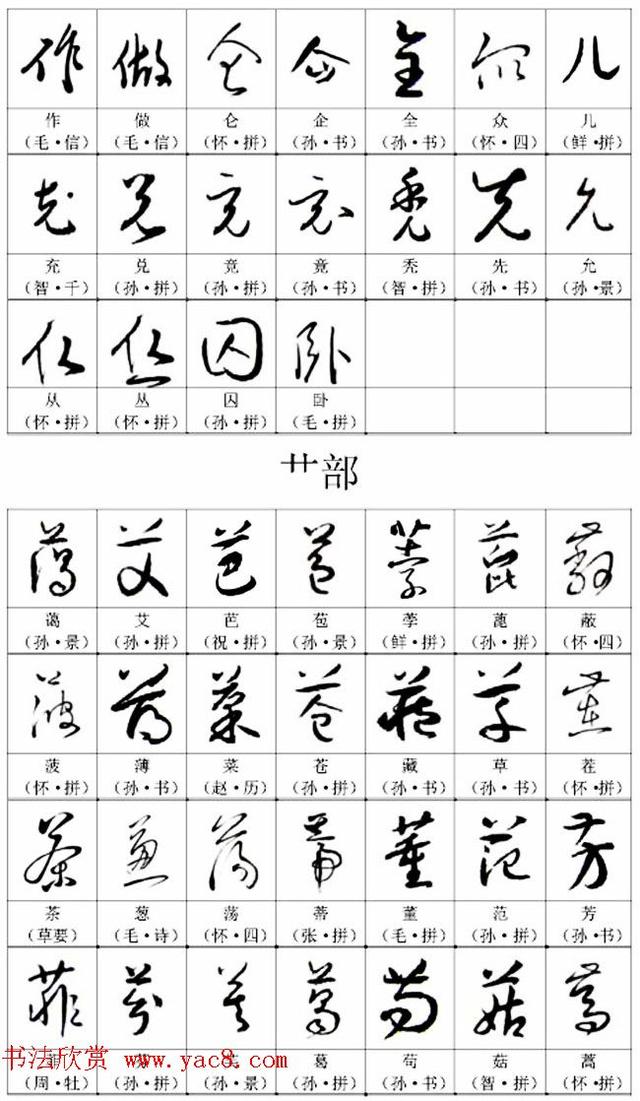 作 做 仑 企 全 众 儿
(毛·信) (毛·信) (怀·拼) (孙·书) (孙·书) (怀·四) (鲜·拼)
充 兑 竞 竟 秃 先 允
(智·千) (孙·拼) (孙·拼) (孙·书) (智·拼) (孙·书) (孙·景)
从 丛 囚 卧
(怀·拼) (怀·拼) (孙·拼) (毛·拼)
艹部
蔼 艾 芭 苞 荸 蓖 蔽
(孙·景) (孙·拼) (祝·拼) (孙·景) (鲜·拼) (孙·拼) (怀·四)
菠 薄 菜 苍 藏 草 茬
(怀·拼) (孙·书) (赵·历) (孙·拼) (孙·书) (孙·书) (怀·拼)
茶 葱 荡 蒂 董 范 芳
(草要) (毛·诗) (怀·四) (张·拼) (毛·拼) (孙·拼) (孙·书)
葛 苟 菇 蒿
书法欣赏 www.yac8.com
(周·牡) (孙·拼) (孙·景) (孙·拼) (孙·书) (智·拼) (怀·拼)